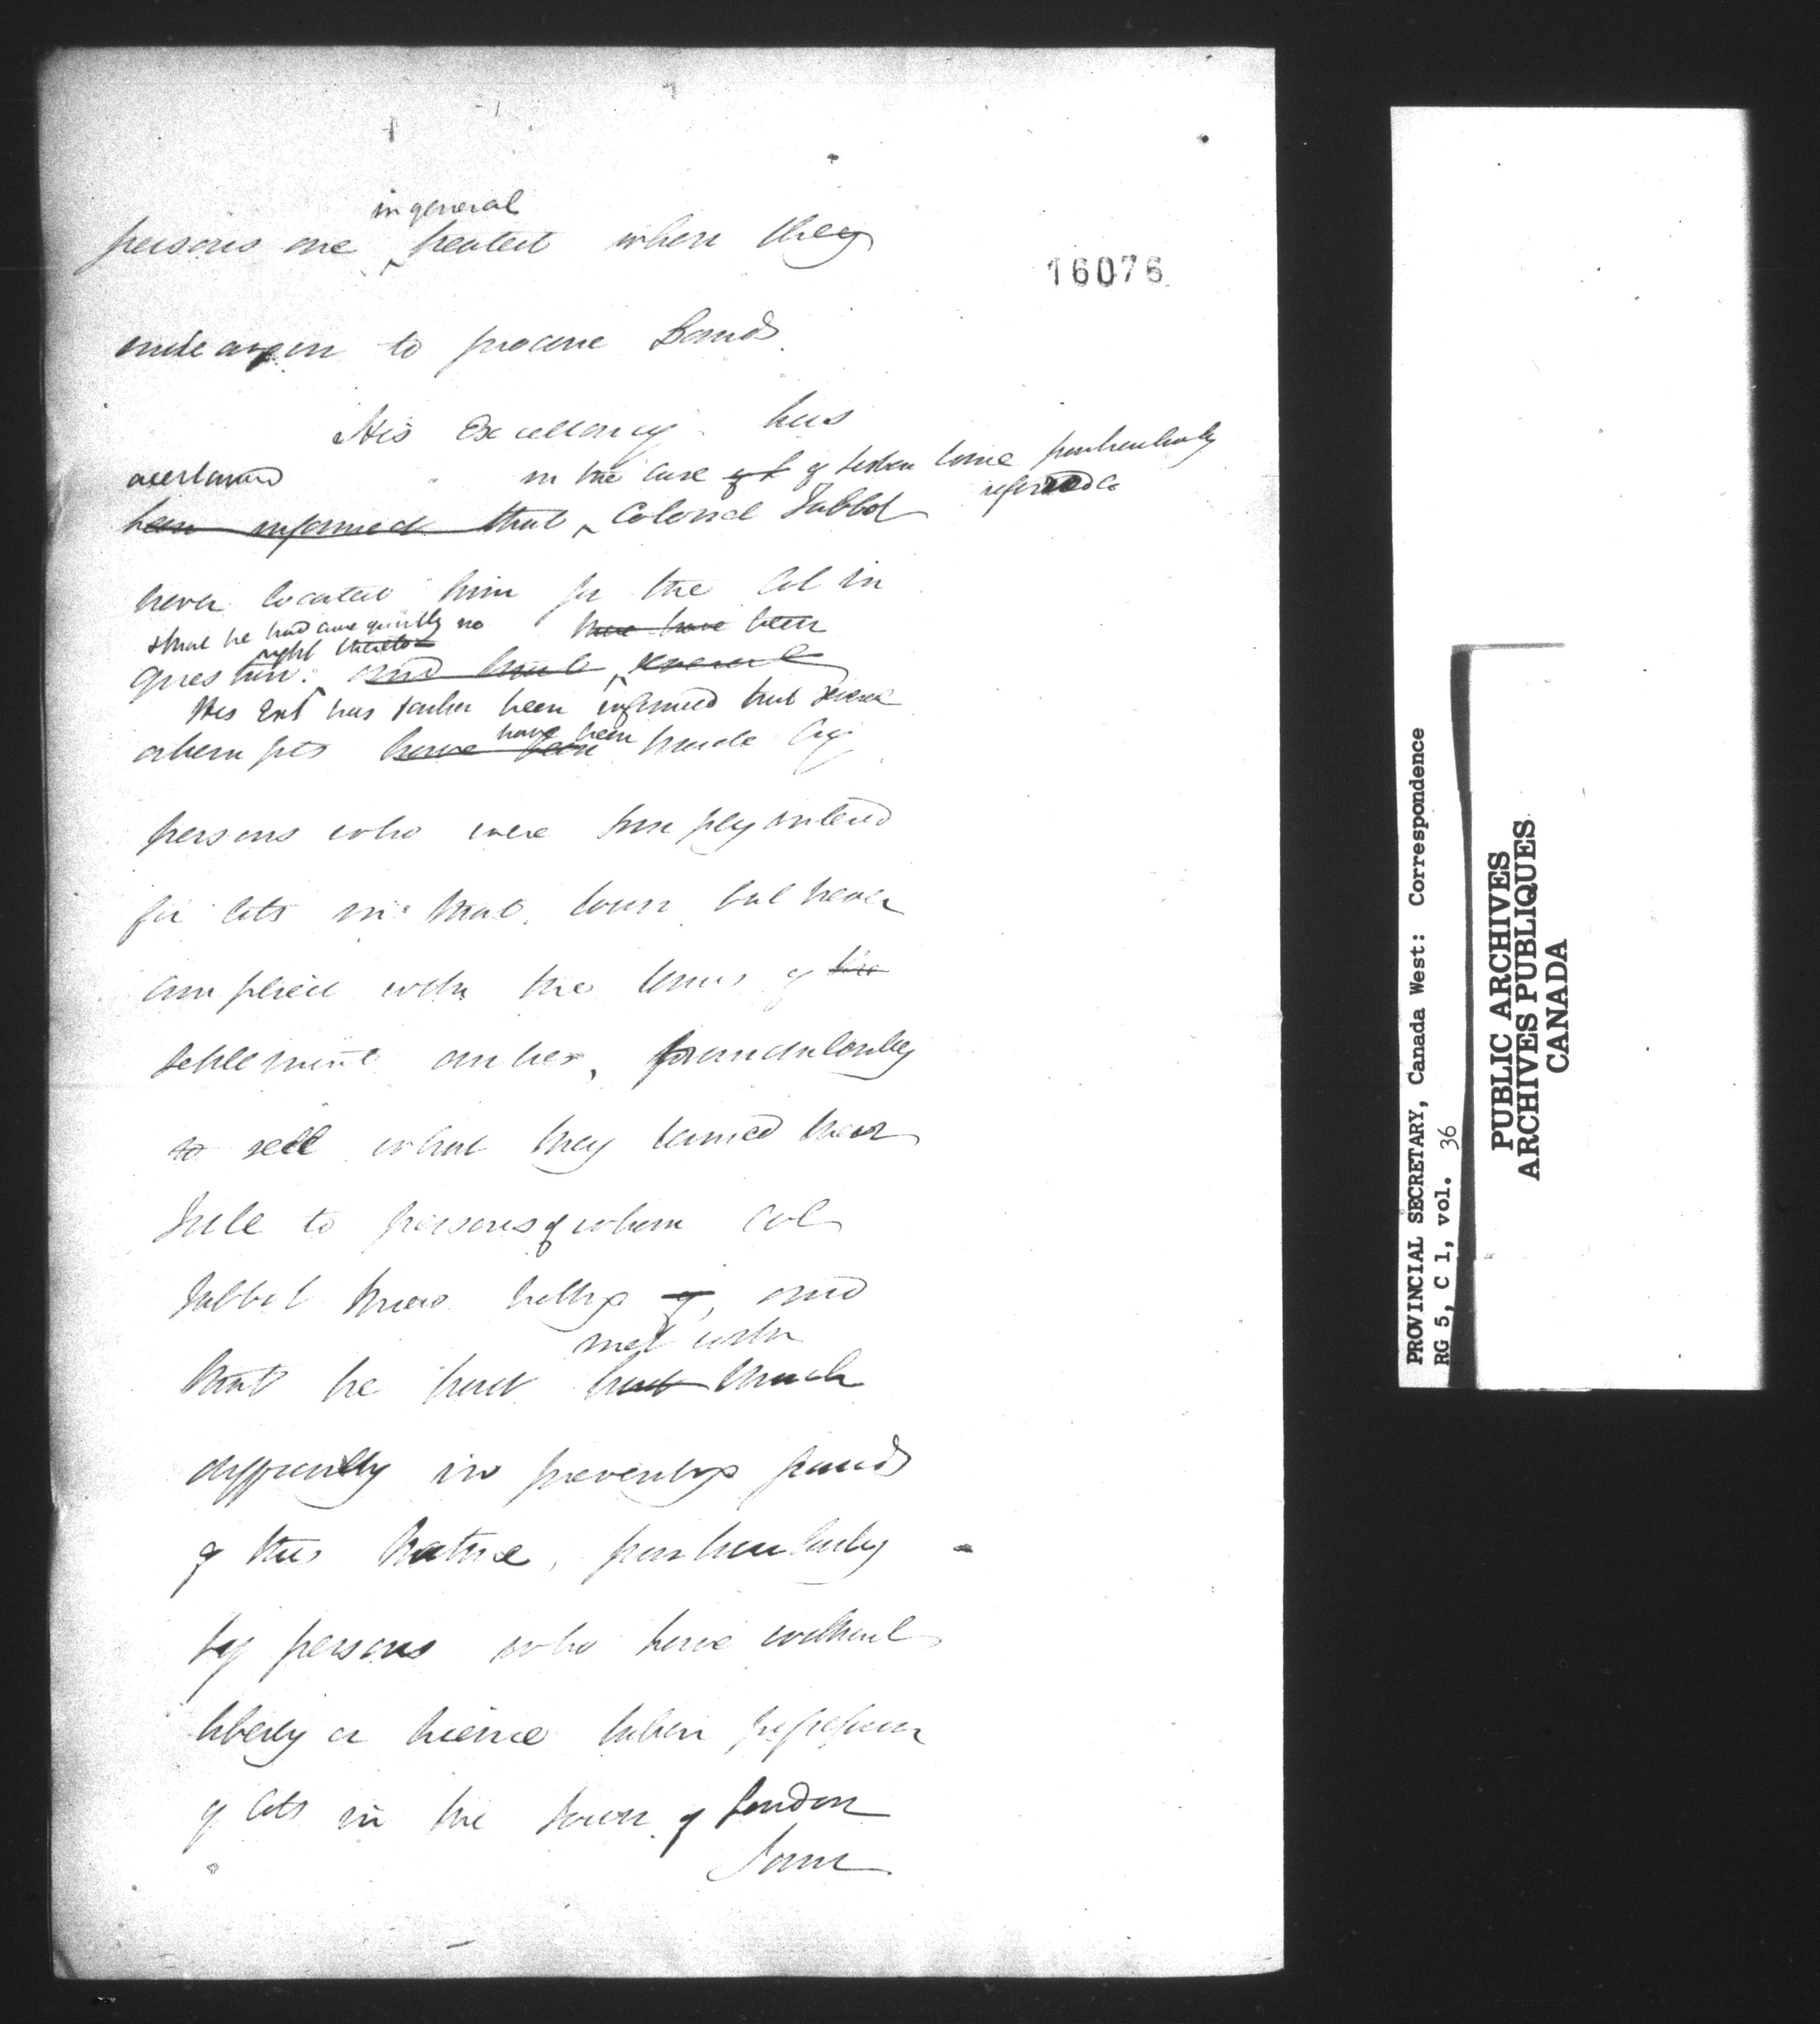 in general
persons are treated when they
16076
endeavour to procure Lands.
His Excellency has
ascertained in the case of of particularly
referred to
been informed that Colonel Talbot
never located him for the lot in
that he had consequently no there have been
right thereto
question. and that several
His Exc has further been informed that several
have been
attempts have been made by
persons who were simply entered
for lots in that town but never
complied with the terms of the
settlement duties, fraudulently
to sell what they termed their
Title to persons of whom Col
Talbot knew nothing of, and
met with
that he had had much
difficulty in preventing frauds
of this nature, particularly
by persons who have without
liberty or license taken possession
of lots in the Town of London
Some
PROVINCIAL SECRETARY, Canada West: Correspondence
RG 5, C 1, vol. 36
PUBLIC ARCHIVES
ARCHIVES PUBLIQUES
CANADA